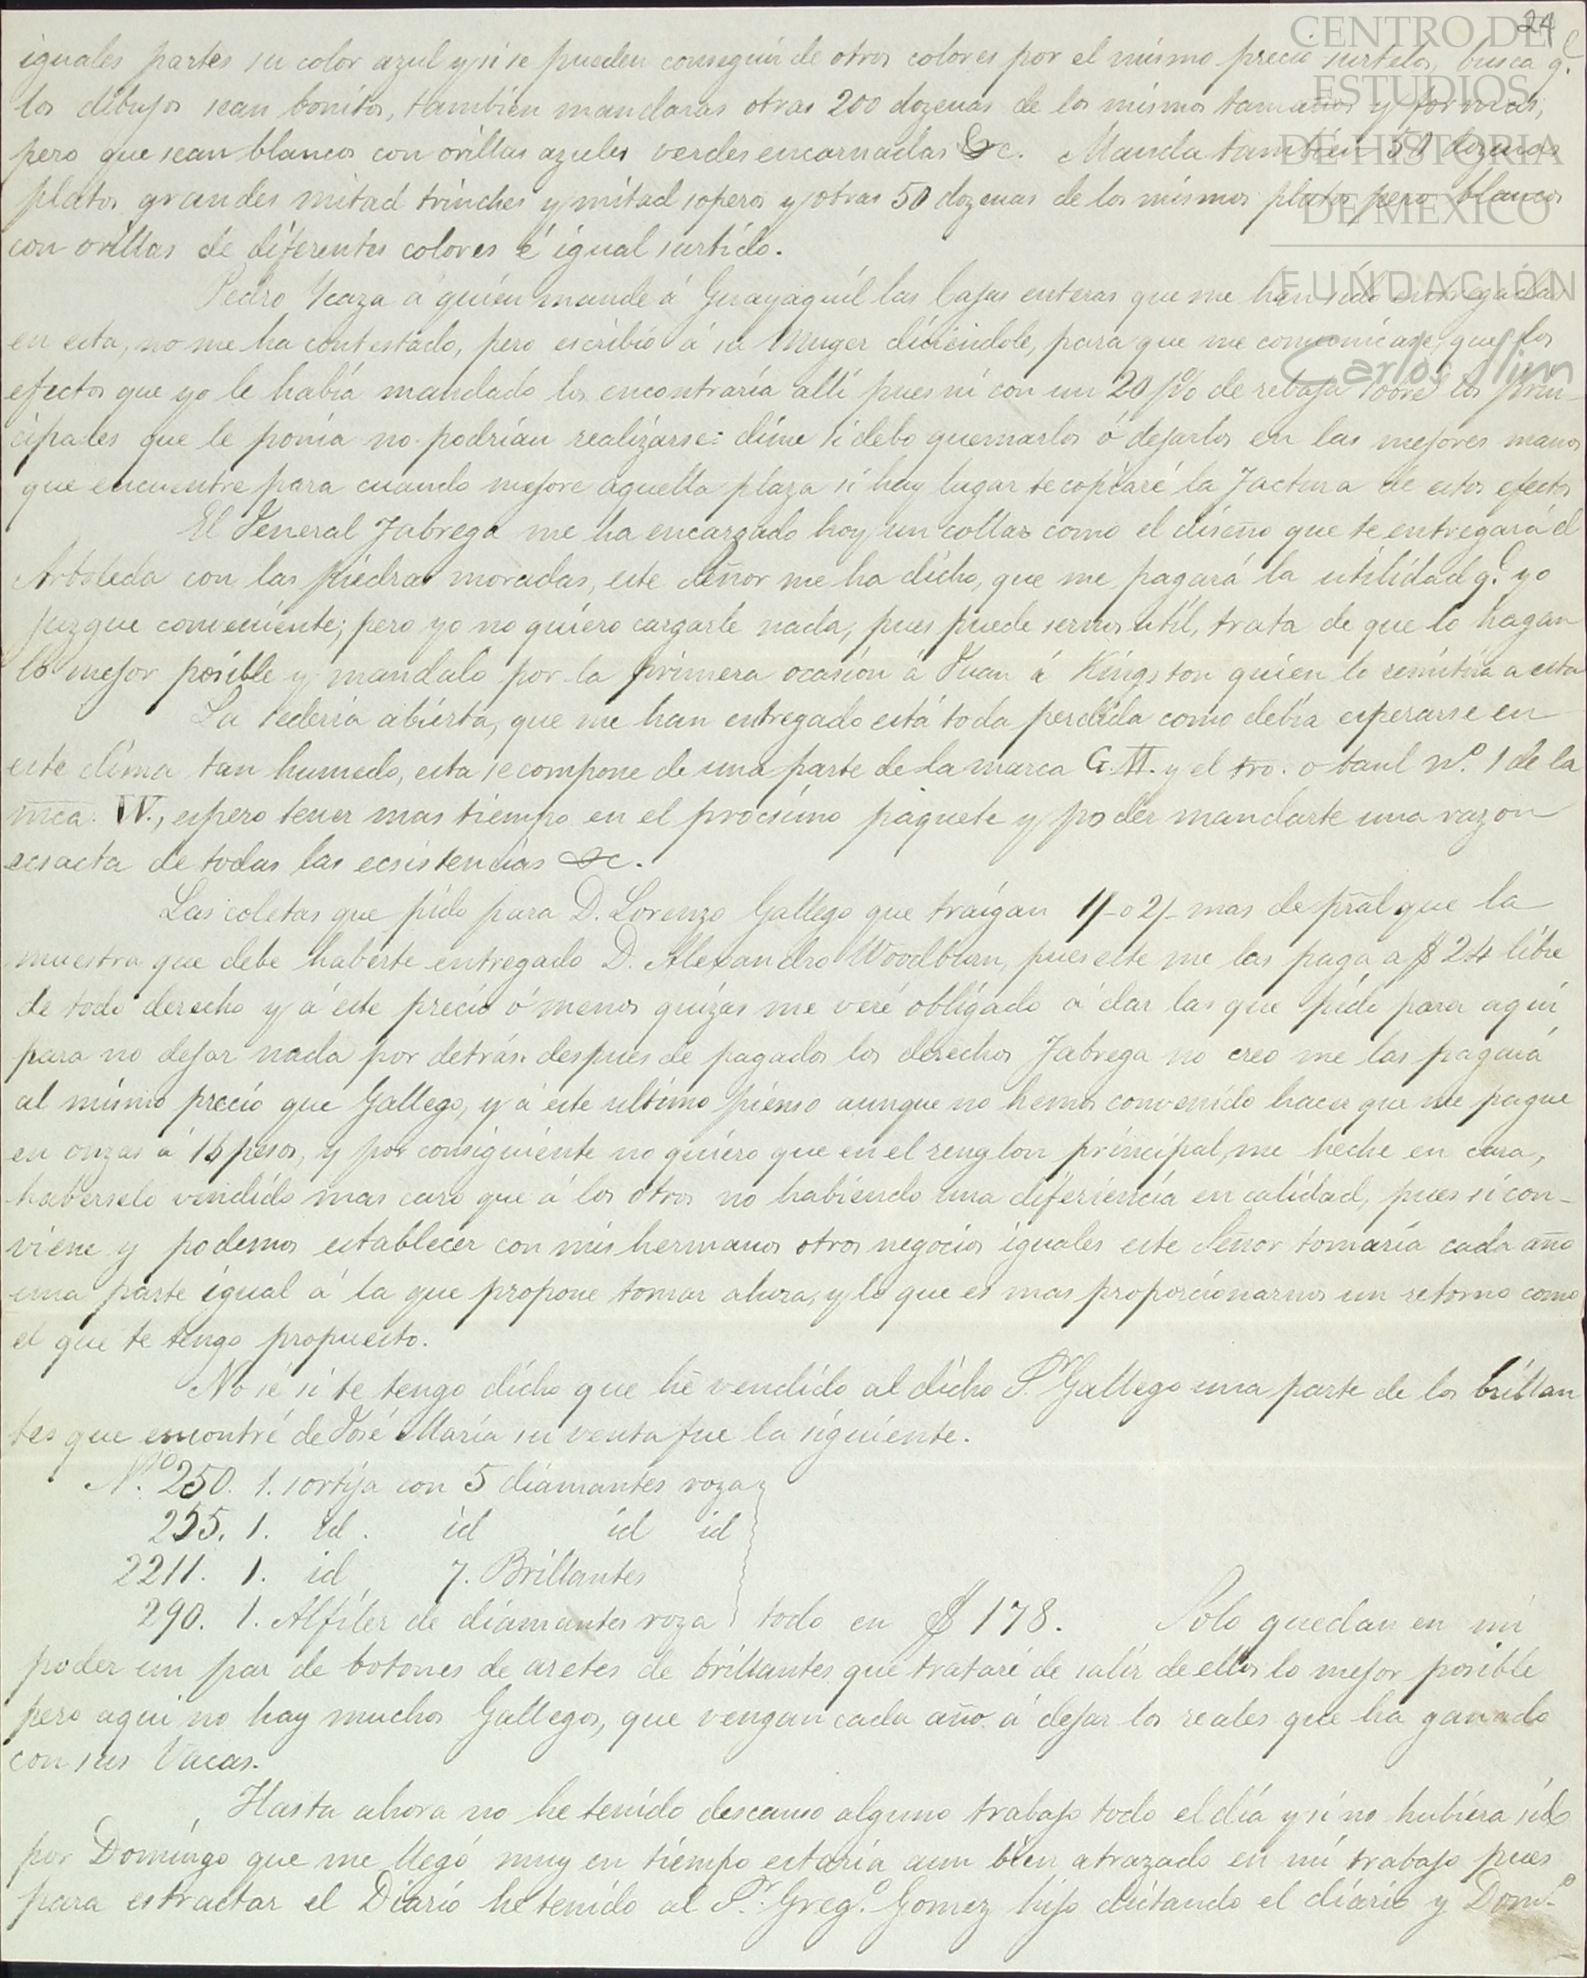 24
CENTRO DE
ESTUDIOS
DE HISTORIA
DE MEXICO
FUNDACIÓN
Carlos Slim
iguales partes su color azul y si se pueden conseguir de otros colores por el mismo precio surtelos, busca q.e
los dibujos sean bonitos, tambien mandaras otras 200 dozenas de los mismos tamaños y formas,
pero que sean blancos con orillas azules verdes encarnadas &c. Manda tambien 50 dozenas
platos grandes mitad trinches y mitad soperos y otras 50 dozenas de los mismos platos pero blancos
con orillas de diferentes colores é igual surtido.
Pedro Ycaza á quien mandé á Guayaquíl las Cajas enteras que me han sido entregadas
en esta, no me ha contestado, pero escribió á su Muger diciendole, para que me comunicase, que los
efectos que yo le había mandado los encontraría allí pues ni con un 20 p% de rebaja sobre los prin-
cipales que le ponía no podrían realizarse: dime si debo quemarlos ó dejarlos en las mejores manos
que encuentre para cuando mejore aquella plaza si hay lugar te copiaré la factura de estos efectos
El General Fabrega me ha encargado hoy un collar como el diseño que te entregará el
Arboleda con las piedras moradas, este Señor me ha dicho, que me pagará la utilidad q.e yo
juzgue conveniente; pero yo no quiero cargarle nada, pues puede sernos util, trata de que lo hagan
lo mejor posible y mandalo por la primera ocasion á Juan á Kingston quien lo remitira a esta
La sedería abierta, que me han entregado está toda perdida como debía esperarse en
este clima tan humedo, esta se compone de una parte de la marca G.M. y el tro. o baul n.o 1 de la
mca. W., espero tener mas tiempo en el procsimo paquete y poder mandarte una razon
ecsacta de todas las ecsistencias &c.
Las coletas que pido para D. Lorenzo Gallego que traígan 1/- o 2/- mas de pral que la
muestra que debe haberte entregado D. Alexandro Woodburn, pues este me las paga a $ 24 libre
de todo derecho y á este precio ó menos quizas me veré obligado á dar las que pido para aquí
para no dejar nada por detrás. despues de pagados los derechos Fabrega no creo me las pagará
al mismo precio que Gallego, y á este ultimo pienso aunque no hemos convenido hacer que me pague
en onzas á 16 pesos, y por consiguiente no quiero que en el renglon principal, me heche en cara,
haberselo vendido mas caro que á los otros no habiendo una diferiencia en calidad, pues si con-
viene y podemos establecer con mis hermanos otros negocios iguales este Señor tomaría cada año
una parte igual á la que propone tomar ahora, y lo que es mas proporcionarnos un retorno como
el que te tengo propuesto.
No sé si te tengo dicho que hé vendido al dicho S.r Gallego una parte de los brillan
tes que encontré de José María su venta fue la siguiente.
N.o 250. 1. sortija con 5 diamantes roza
255. 1. id. id id id
2211. 1. id 7. Brillantes
290. 1. Alfiler de diamantes roza } todo en $ 178. Solo quedan en mi
poder un par de botones de aretes de brillantes que trataré de salir de ellos lo mejor posible
pero aqui no hay muchos Gallegos, que vengan cada año á dejar los reales que ha ganado
con sus Vacas.
Hasta ahora no he tenido descanso alguno trabajo todo el día y si no hubiera sido
por Domingo que me llegó muy en tiempo estaría aun bien atrazado en mi trabajo pues
para estractar el Diario he tenido al S.r Greg.o Gomez hijo dictando el diario y Dom.o